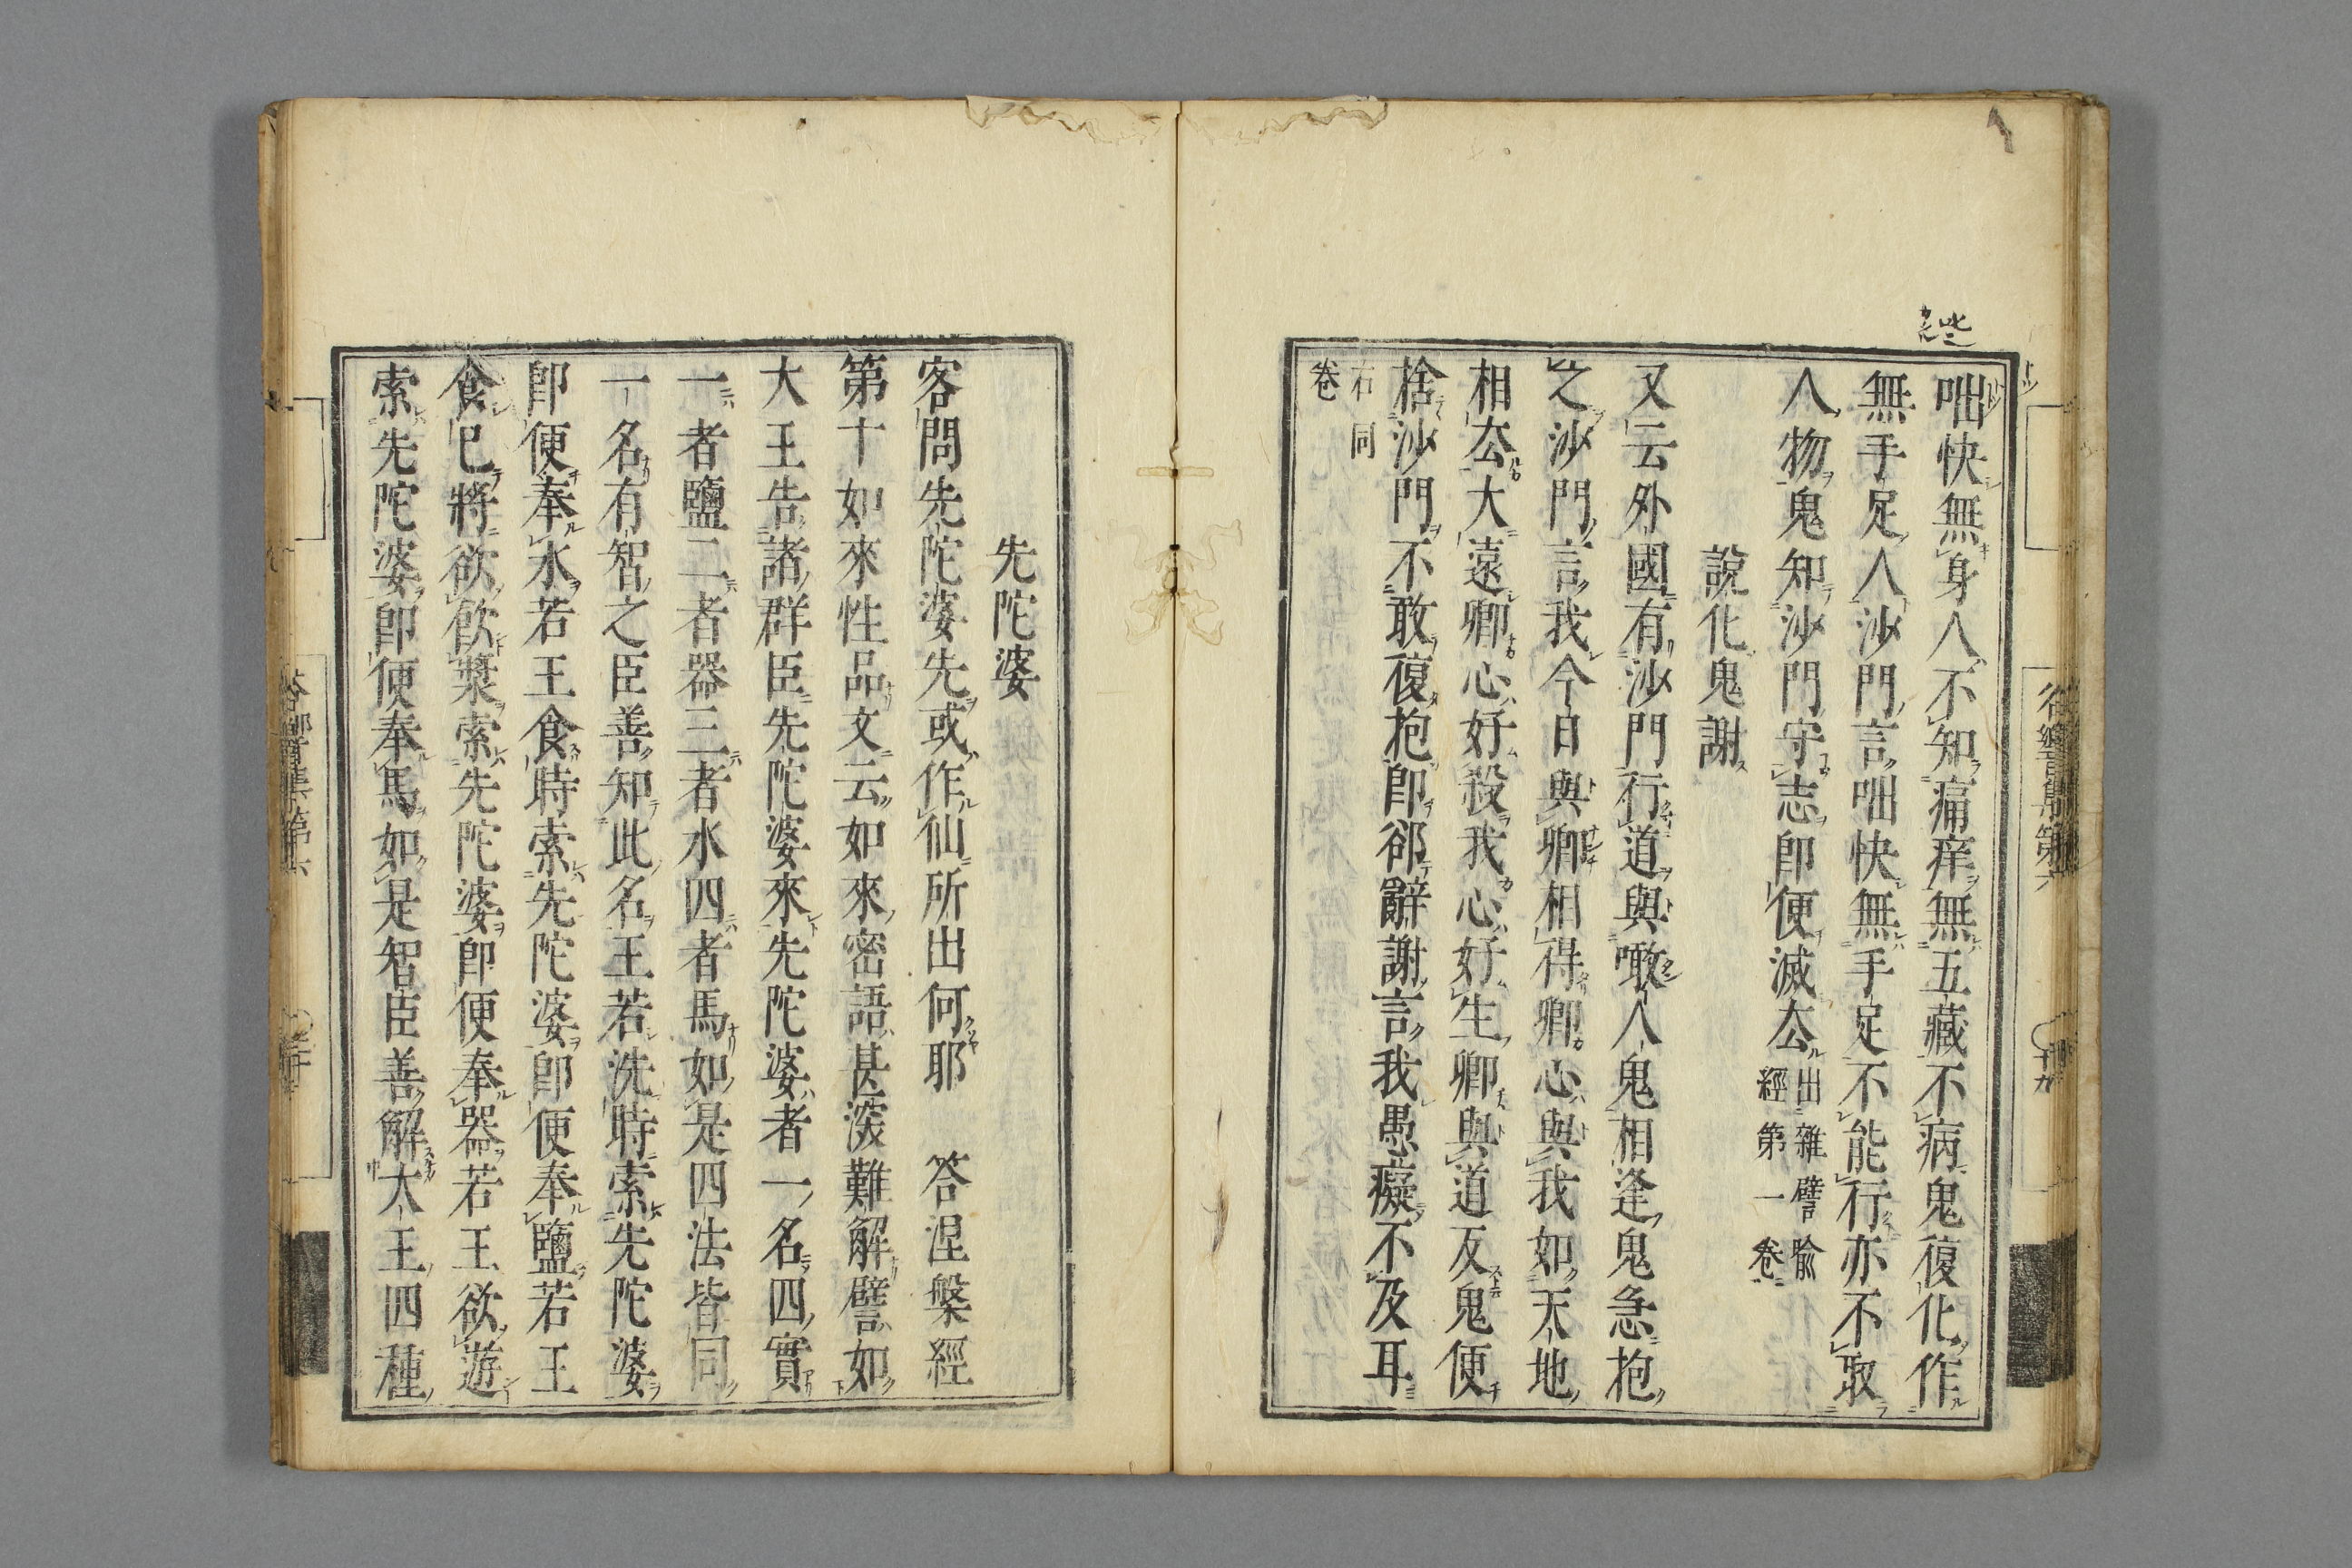 咄快無身人不知痛痒無五藏不病鬼復化作
無手足人沙門言咄快無手足不能行亦不取
人物鬼知沙門守志即便滅去出雜譬喩經第一卷
説化鬼謝
又云外國有沙門行道與噉人鬼相逢鬼急抱
之沙門言我今日與卿相得卿心與我如天地
相去大遠卿心好殺我心好生卿與道反鬼便
捨沙門不敢復抱即郤辭謝言我愚癡不及耳
右同卷
先陀婆
客問先陀婆先或作仙所出何耶　答涅槃經
第十如來性品文云如來密語甚深難解譬如
大王告諸群臣先陀婆來先陀婆者一名四實
一者鹽二者器三者水四者馬如是四法皆同
一名有智之臣善知此名王若洗時索先陀婆
即便奉水若王食時索先陀婆即便奉鹽若王
食已將欲飲漿索先陀婆即便奉器若王欲遊
索先陀婆即便奉馬如是智臣善解大王四種